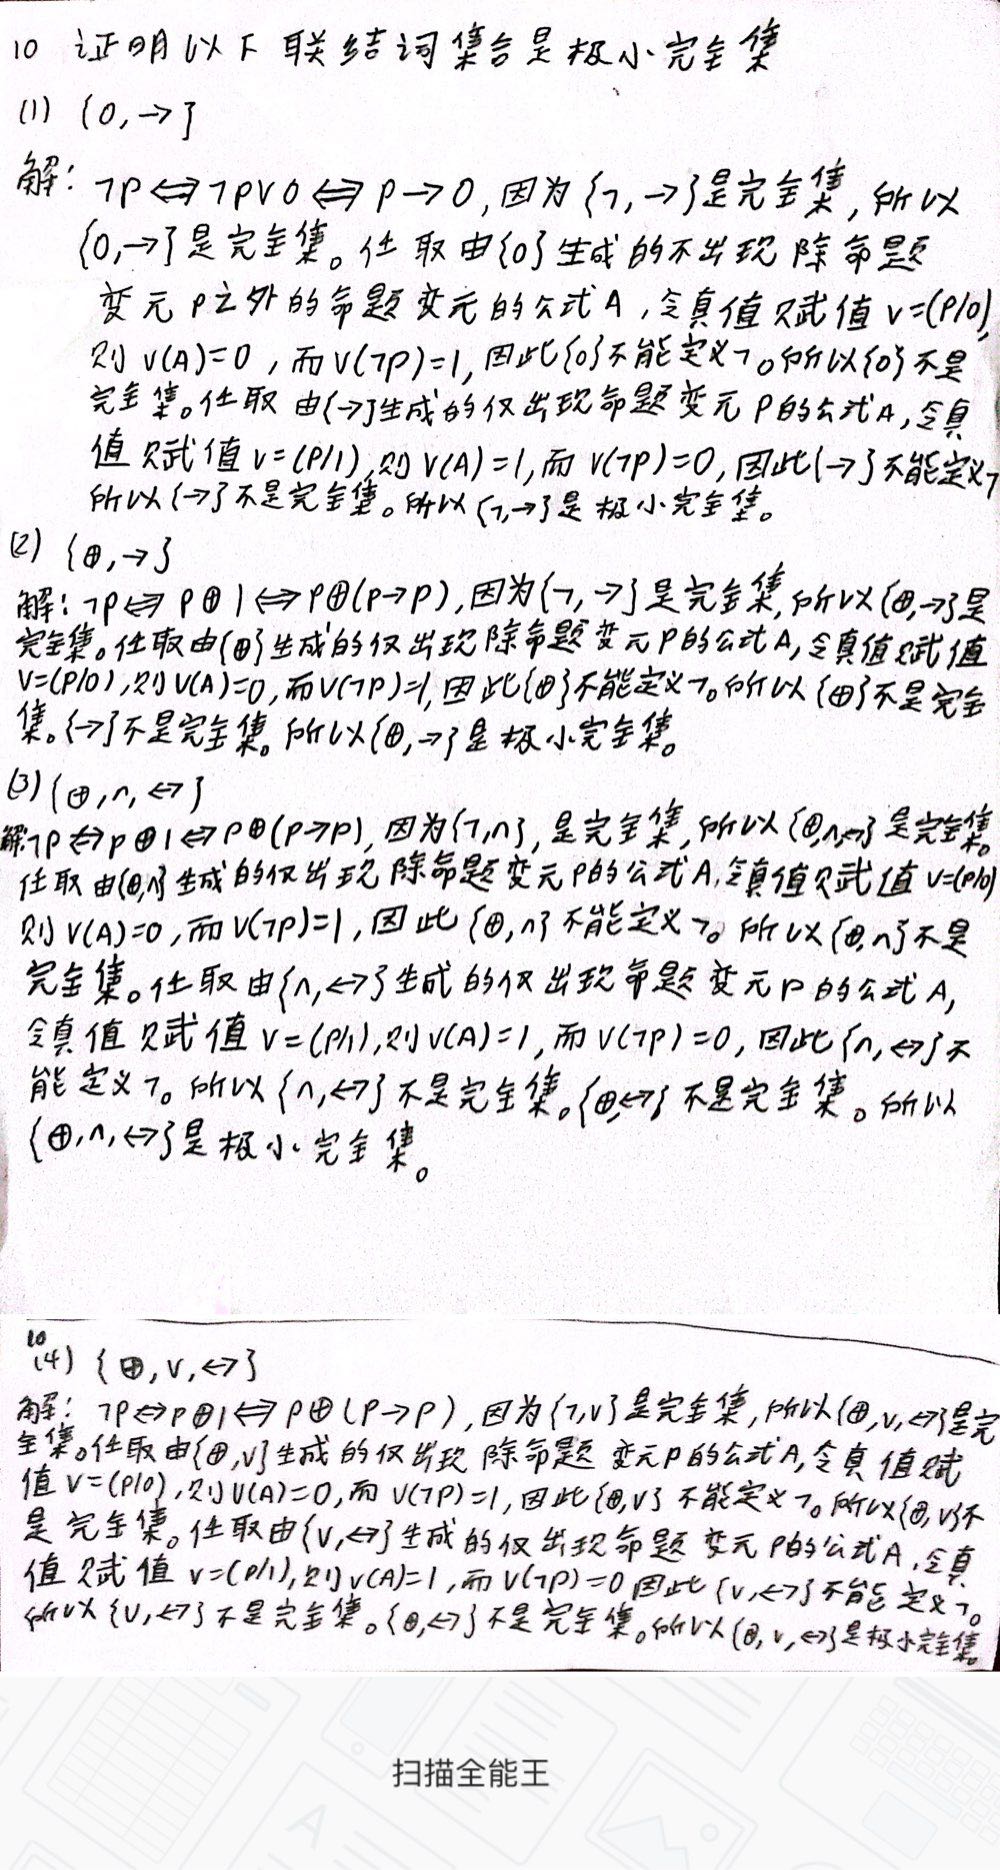 10 证明以下联结词集合是极小完全集
(1) {0,→}
解：¬p⇔¬p∨0⇔p→0,因为{¬,→}是完全集,所以
{0,→}是完全集。任取由{0}生成的不出现除命题
变元p之外的命题变元的公式A,令真值赋值v=(p/0),
则v(A)=0,而v(¬p)=1,因此{0}不能定义¬。所以{0}不是
完全集。任取由{→}生成的仅出现命题变元P的公式A,令真
值赋值v=(p/1),则v(A)=1,而v(¬p)=0,因此{→}不能定义¬
所以{→}不是完全集。所以{¬,→}是极小完全集。
(2) {⊕,→}
解：¬p⇔p⊕1⇔p⊕(p→p),因为{¬,→}是完全集,所以{⊕,→}是
完全集。任取由{⊕}生成的仅出现除命题变元P的公式A,令真值赋值
V=(p/0),则v(A)=0,而v(¬p)=1,因此{⊕}不能定义¬。所以{⊕}不是完全
集。{→}不是完全集。所以{⊕,→}是极小完全集。
(3) {⊕,∧,↔}
解：¬p⇔p⊕1⇔p⊕(p→p),因为{¬,∧},是完全集,所以{⊕,∧,↔}是完全集。
任取由{⊕,∧}生成的仅出现除命题变元P的公式A,令真值赋值v=(p/0)
则v(A)=0,而v(¬p)=1,因此{⊕,∧}不能定义¬。所以{⊕,∧}不是
完全集。任取由{∧,↔}生成的仅出现命题变元p的公式A,
令真值赋值v=(p/1),则v(A)=1,而v(¬p)=0,因此{∧,↔}不
能定义¬。所以{∧,↔}不是完全集。{⊕,↔}不是完全集。所以
{⊕,∧,↔}是极小完全集。
10
(4) {⊕,∨,↔}
解：¬p⇔p⊕1⇔p⊕(p→p),因为{¬,∨}是完全集,所以{⊕,∨,↔}是完
全集。任取由{⊕,∨}生成的仅出现除命题变元p的公式A,令真值赋
值v=(p/0),则v(A)=0,而v(¬p)=1,因此{⊕,∨}不能定义¬。所以{⊕,∨}不
是完全集。任取由{∨,↔}生成的仅出现命题变元p的公式A,令真
值赋值v=(p/1),则v(A)=1,而v(¬p)=0因此{∨,↔}不能定义¬。
所以{∨,↔}不是完全集。{⊕,↔}不是完全集。所以{⊕,∨,↔}是极小完全集。
扫描全能王